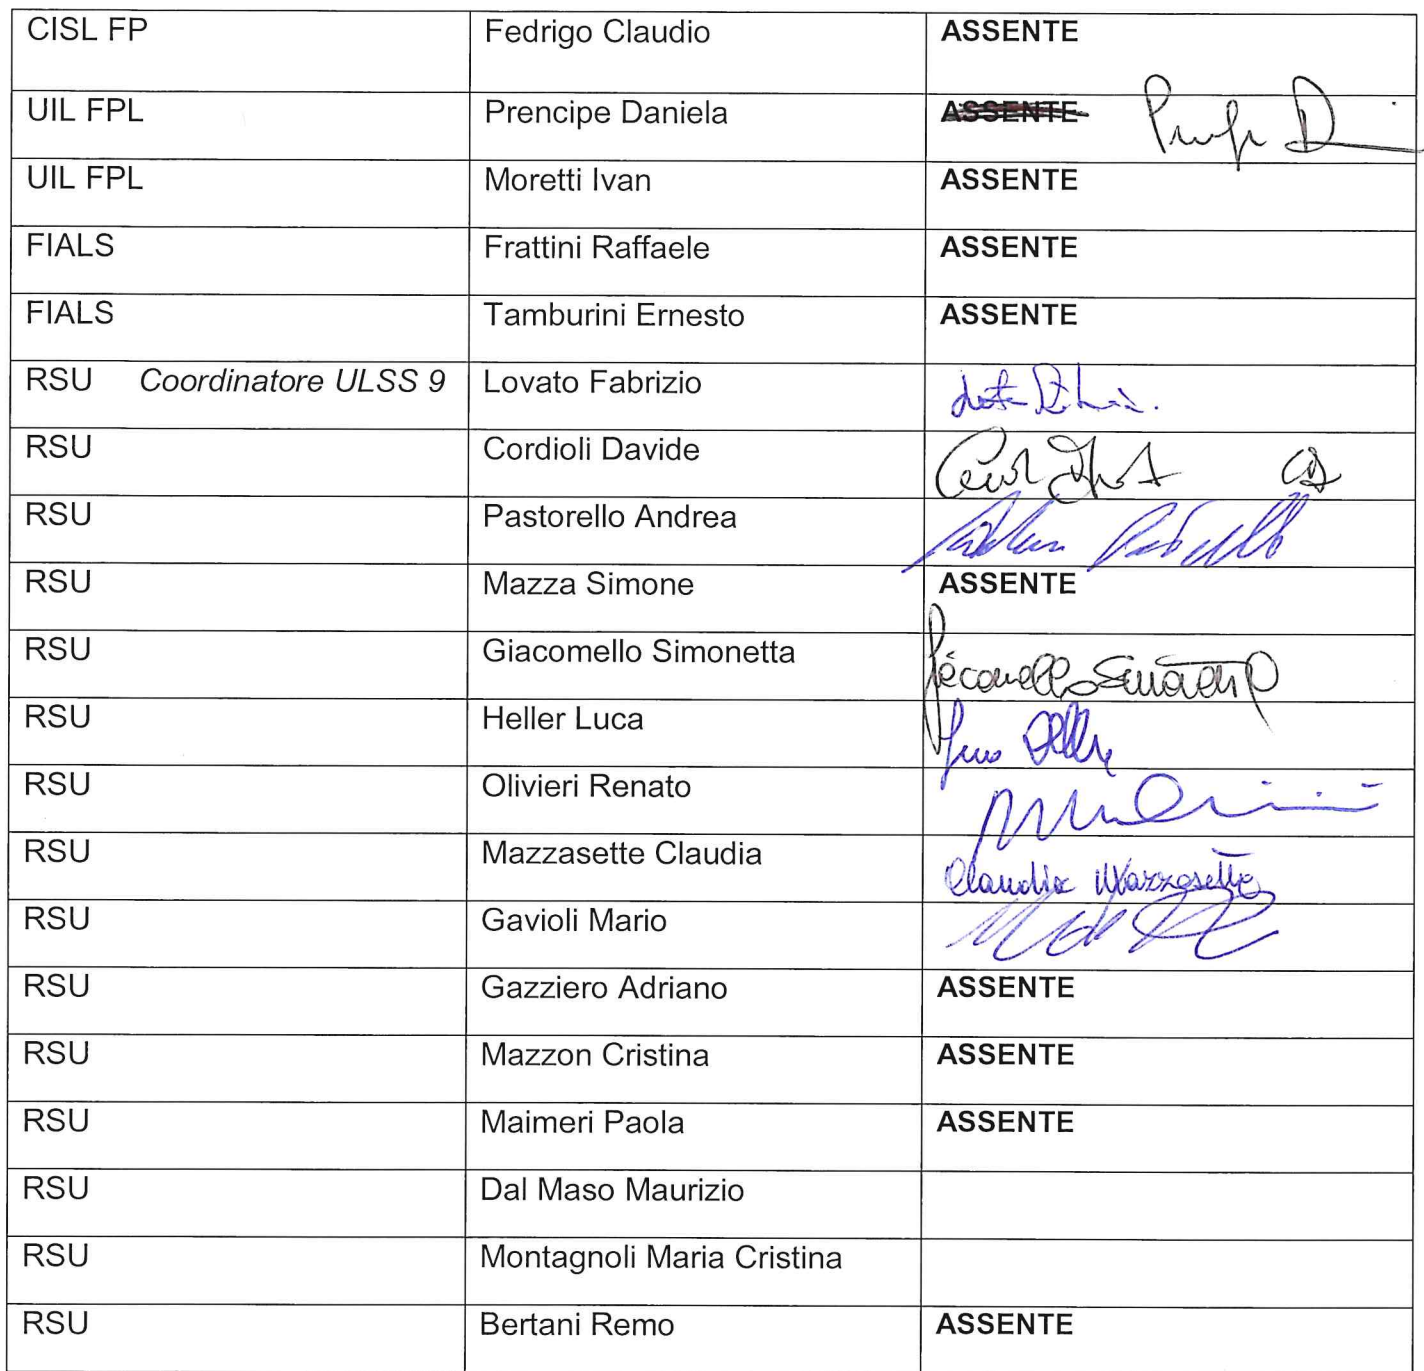 CISL FP Fedrigo Claudio ASSENTE
UIL FPL Prencipe Daniela ASSENTE
UIL FPL Moretti Ivan ASSENTE
FIALS Frattini Raffaele ASSENTE
FIALS Tamburini Ernesto ASSENTE
RSU Coordinatore ULSS 9 Lovato Fabrizio
RSU Cordioli Davide
RSU Pastorello Andrea
RSU Mazza Simone ASSENTE
RSU Giacomello Simonetta
RSU Heller Luca
RSU Olivieri Renato
RSU Mazzasette Claudia Claudia Mazzasette
RSU Gavioli Mario
RSU Gazziero Adriano ASSENTE
RSU Mazzon Cristina ASSENTE
RSU Maimeri Paola ASSENTE
RSU Dal Maso Maurizio
RSU Montagnoli Maria Cristina
RSU Bertani Remo ASSENTE